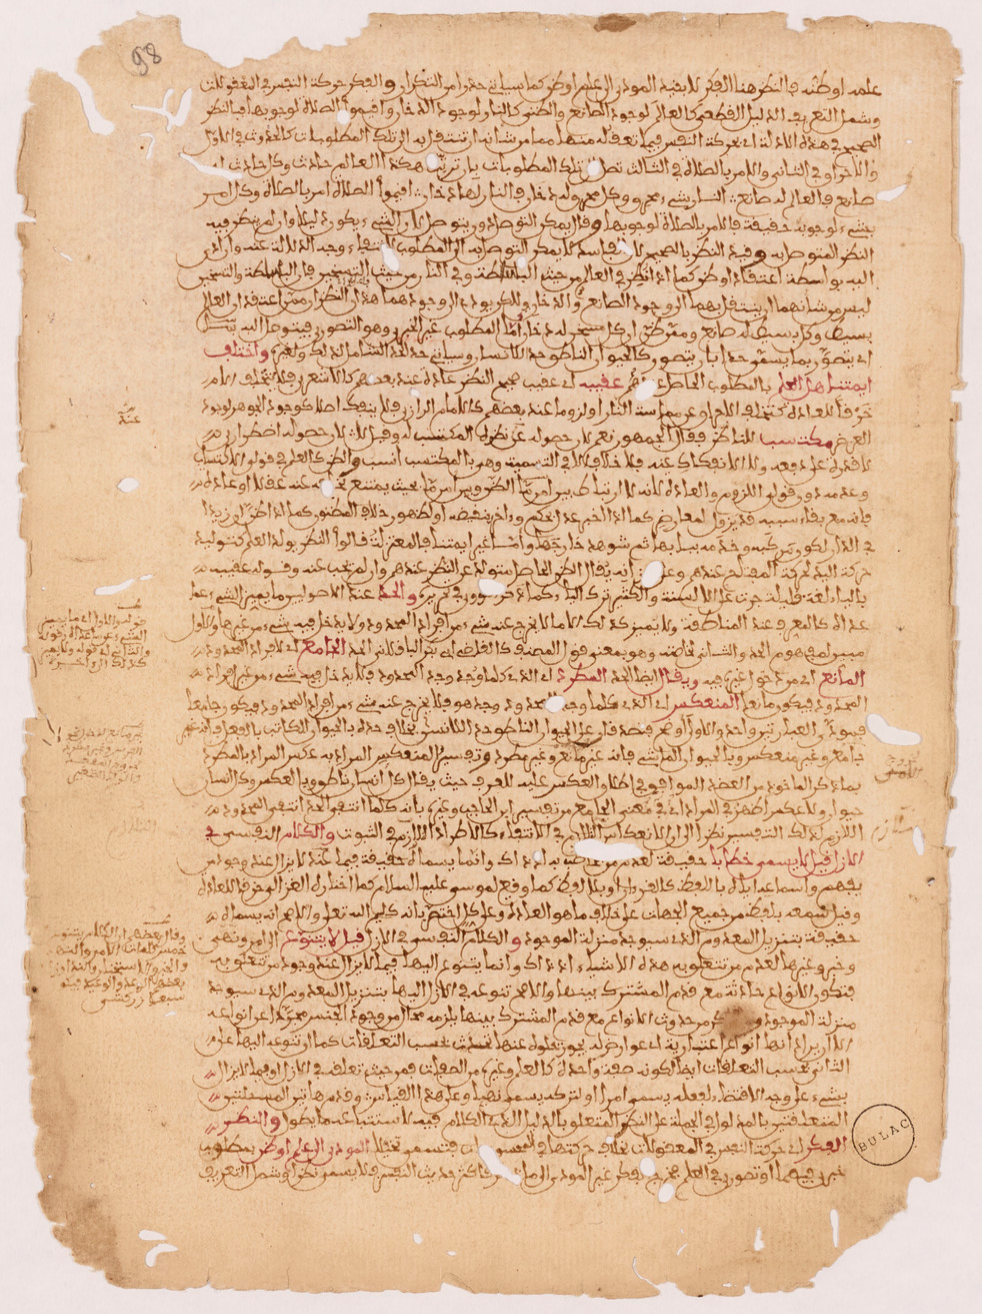 علمه او ظنه فالنظر هنا الفكر لا بقيد المودي الى علم او ظن كما سياتي حذرا من التكرار والفكر حركة النفس في المعقولات
وشمل التعريف الدليل القطعي كالعالم لوجود الصانع والظني كالنار لوجود الدخان واقيموا الصلاة لوجوبها فبالنظر
الصحيح في هذه الادلة اي بحركة النفس فيما تعقله منها مما من شانه ان ينتقل به الى تلك المطلوبات كالحدوث في الاول
والاحراق في الثاني والامر بالصلاة في الثالث تصل الى تلك المطلوبات بان ترتب هكذا العالم حادث وكل حادث له
صانع فالعالم له صانع النار شيء محرق وكل محرق له دخان فالنار لها دخان اقيموا الصلاة امر بالصلاة وكل امر
بشيء لوجوبه حقيقة فالامر بالصلاة لوجوبها وقال يمكن التوصل دون يتوصل لان الشيء يكون دليلا وان لم ينظر فيه
النظر المتوصل به وقيد النظر بالصحيح لان الفاسد لا يمكن التوصل به الى المطلوب لانتفاء وجه الدلالة عنه وان ادى
اليه بواسطة اعتقاد او ظن كما اذا نظر في العالم من حيث البساطة وفي النار من حيث التسخين فان البساطة والتسخين
ليس من شانهما ان ينتقل بهما الى وجود الصانع والدخان ولكن يودي الى وجودهما هذان النظران ممن اعتقد ان العالم
بسيط وكل بسيط له صانع وممن ظن ان كل مسخن له دخان اما المطلوب غير الخبري وهو التصوري فيتوصل اليه
اي يتصور بما يسمى حدا بان يتصور كالحيوان الناطق حدا للانسان وسياتي حد الحد الشامل لذلك ولغيره واختلف
ايمتنا هل العلم بالمطلوب الحاصل عندهم عقيبه اي عقيب صحيح النظر عادة عند بعضهم كالاشعري فلا يتخلف الا
خرقا للعادة كتخلف الاحراق عن مماسة النار او لزوما عند بعضهم كالامام الرازي فلا ينفك اصلا كوجود الجوهر لوجود
العرض مكتسب للناظر فقال الجمهور نعم لان حصوله عن نظره المكتسب له وقيل لا لان حصوله اضطراري
لا قدرة على دفعه ولا الانفكاك عنه فلا خلاف الا في التسمية وهي بالمكتسب انسب والظن كالعلم في قولي الاكتساب
وعدمه دون قولي اللزوم والعادة لانه لا ارتباط بين امر ما الظن وبين امر ما بحيث يمتنع تخلفه عنه عقلا او عادة
فانه مع بقاء سببه قد يزول لمعارض كما اذا اخبر عدل بحكم وءاخر بنقيضه او لظهور خلاف المظنون كما اذا ظن ان زيدا
في الدار لكون مركبه وخدمه ببابها ثم شوهد خارجها واما غير ايمتنا فالمعتزلة قالوا النظر يولد العلم كتوليد
حركة اليد لحركة المفتاح عندهم وعلى وزانه يقال الظن الحاصل متولد عن النظر عندهم وان لم يجب عنه وقوله عقيبه
بالياء لغة قليلة جرت على الالسنة والكثير ترك الياء كما ذكره النووي في تحريره والحد عند الاصوليين ما يميز الشيء عما
عداه كالمعرف عند المناطقة ولا يميز كذلك الا ما لا يخرج عنه شيء من افراد المحدود ولا يدخل فيه شيء من غيرها والاول
مبين لمفهوم الحد والثاني لخاصته وهو بمعنى قول المصنف كالقاضي ابي بكر الباقلاني الحد الجامع اي لافراد المحدود
المانع اي من دخول غيرها فيه ويقال ايضا الحد المطرد اي الذي كلما وجد وجد المحدود فلا يدخل فيه شيء من غير افراد
المحدود فيكون مانعا المنعكس اي الذي كلما وجد المحدود وجد هو فلا يخرج عنه شيء من افراد المحدود فيكون جامعا
فمودى العبارتين واحد والاولى اوضح فتصدقان على الحيوان الناطق حدا للانسان بخلاف حده بالحيوان الكاتب بالفعل فانه غير
جامع وغير منعكس وبالحيوان الماشي فانه غير مانع وغير مطرد وتفسير المنعكس المراد به عكس المراد بالمطرد
بما ذكر الماخوذ من العضد الموافق في اطلاق العكس عليه للعرف حيث يقال كل انسان ناطق وبالعكس وكل انسان
حيوان ولا عكس اظهر في المراد اي في معنى الجامع من تفسير ابن الحاجب وغيره بانه كلما انتفى الحد انتفى المحدود
اللازم لذلك التفسير نظرا الى ان الانعكاس التلازم في الانتفاء كالاطراد التلازم في الثبوت والكلام النفسي في
الازل قيل لا يسمى خطابا حقيقة لعدم من يخاطب به اذ ذاك وانما يسماه حقيقة فيما لا يزال عند وجود من
يفهم واسماعه اياه باللفظ كالقرءان او بلا لفظ كما وقع لموسى عليه السلام كما اختاره الغزالي خرقا للعادة
وقيل سمعه بلفظ من جميع الجهات على خلاف ما هو العادة وعلى كل اختص بانه كليم الله تعلى والاصح انه يسماه
حقيقة بتنزيل المعدوم الذي سيوجد منزلة الموجود والكلام النفسي في الازل قيل لا يتنوع الى امر ونهي
وخبر وغيرها لعدم من تتعلق به هذه الاشياء اذ ذاك وانما يتنوع اليها فيما لا يزال عند وجود من تتعلق به
فتكون الانواع حادثة مع قدم المشترك بينها والاصح تنوعه في الازل اليها بتنزيل المعدوم الذي سيوجد
منزلة الموجود وما ذكر من حدوث الانواع مع قدم المشترك بينها يلزمه محال من وجود الجنس مجردا عن انواعه
الا ان يراد انها انواع اعتبارية اي عوارض له يجوز خلوه عنها تحدث بحسب التعلقات كما ان تنوعه اليها على
الثاني بحسب التعلقات ايضا لكونه صفة واحدة كالعلم وغيره من الصفات فمن حيث تعلقه في الازل او فيما لا يزال
بشيء على وجه الاقتضاء لفعله يسمى امرا او لتركه يسمى نهيا وعلى هذا القياس وقدم هاتين المسئلتين
المتعلقتين بالمدلول في الجملة على النظر المتعلق بالدليل الذي الكلام فيه لاستتباعه ما يطول والنظر
الفكر اي حركة النفس في المعقولات بخلاف حركتها في المحسوسات فتسمى تخييلا المودي الى علم او ظن بمطلوب
خبري فيهما او تصوري في العلم فخرج الفكر غير المودي الى ما ذكر كاكثر حديث النفس فلا يسمى نظرا وشمل التعريف
98
BULAC